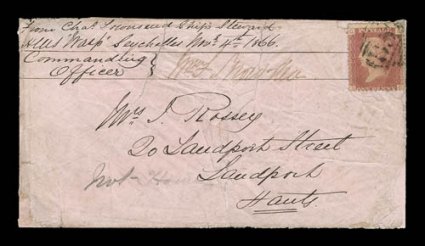 From Chas. Townsend Ship's Steward
HMS Wasp Seychelles Novr. 4th 1866.
Commanding
Officer
Mrs J. Rossey
20 Landport Street
Landport
Hants
Not